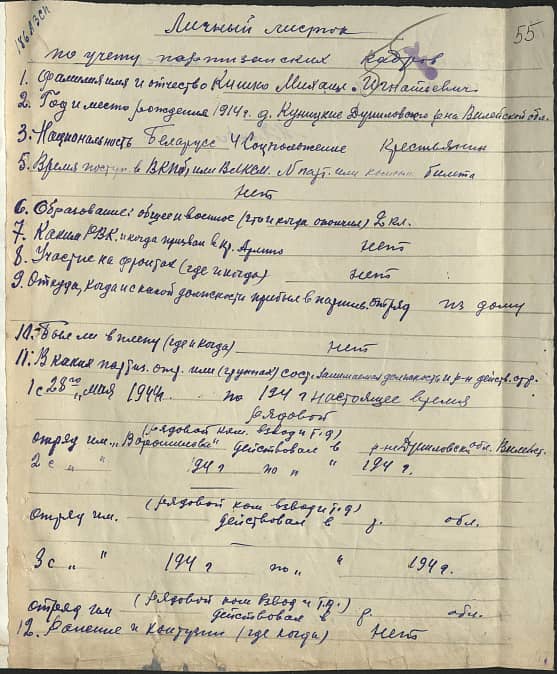 55
Личный листок
по учету партизанских кадров
1. Фамилия имя и отчество Кишко Михаил Игнатьевич
2. Год и место рождения 1914 г. д. Куницкие Дуниловского р-на Вилейской обл.
3. Национальность Беларусс 4 Соцположение Крестьянин
5. Время поступ. в ВКП(б) или ВЛКСМ. N парт. или комсом. билета
Нет
6. Образование: общее и военное (что и когда окончил) 2 кл.
7. Каким РВК. и когда призван в Кр. Армию нет
8. Участие на фронтах (где и когда) нет
9. Откуда, когда и с какой должности прибыл в партиз. отряд из дому
10. Был ли в плену (где и когда) нет
11. В каких партиз. отр. или (группах) сост. занимаемая должность и р-н действ. отр.
1 с 28го „мая 1944г. по 194 г настоящее время
рядовой
(рядовой ком. взвод и т.д)
отряд им. „Ворошилова" действовал в р-не Дуниловск. обл. Вилейск.
2 с „ " 194 г по „ " 194 г.
(рядовой ком взвод и т.д)
отряд им. действовал в р. обл.
3 с „ " 194 г по „ " 194 г.
(рядовой ком взвод и т.д.)
отряд им действовал в р. обл.
12. Ранение и контузии (где когда) нет